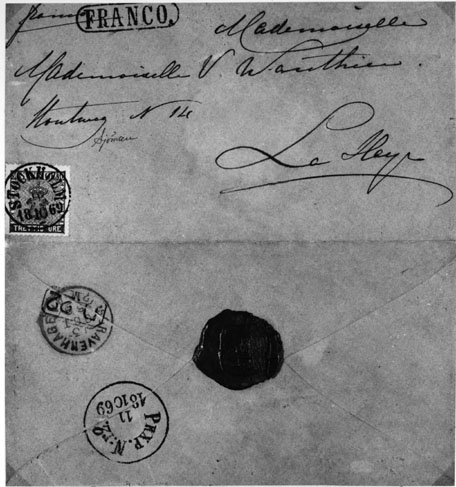 franco FRANCO.
Mademoiselle
Mademoiselle V. Wauthier.
Houtweg N 14
Sjöman
La Haye
STOCKHOLM
18 10 69
TRETTIO ÖRE
'SGRAVENHAGE
PKXP. N:o 2
11
18 10 69